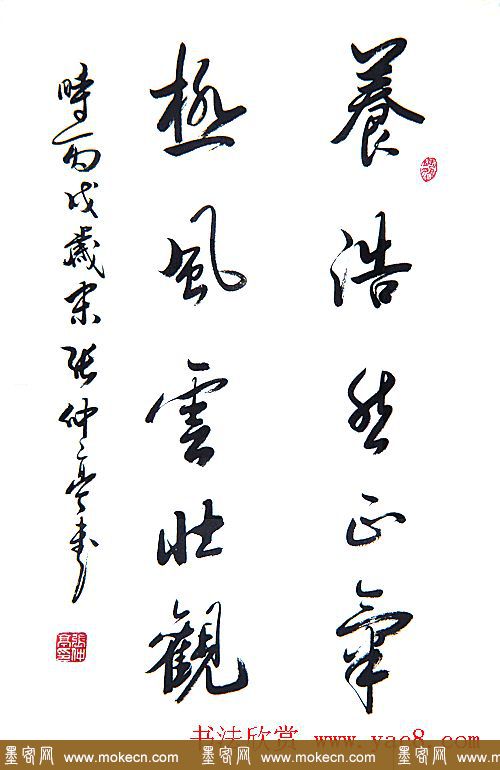 養浩然正氣
極風雲壯觀
時丙戌歲末張仲亭書
張仲亭印
书法欣赏 www.yac8.com
墨客网 墨客网 墨客网
www.mokecn.com www.mokecn.com www.mokecn.com